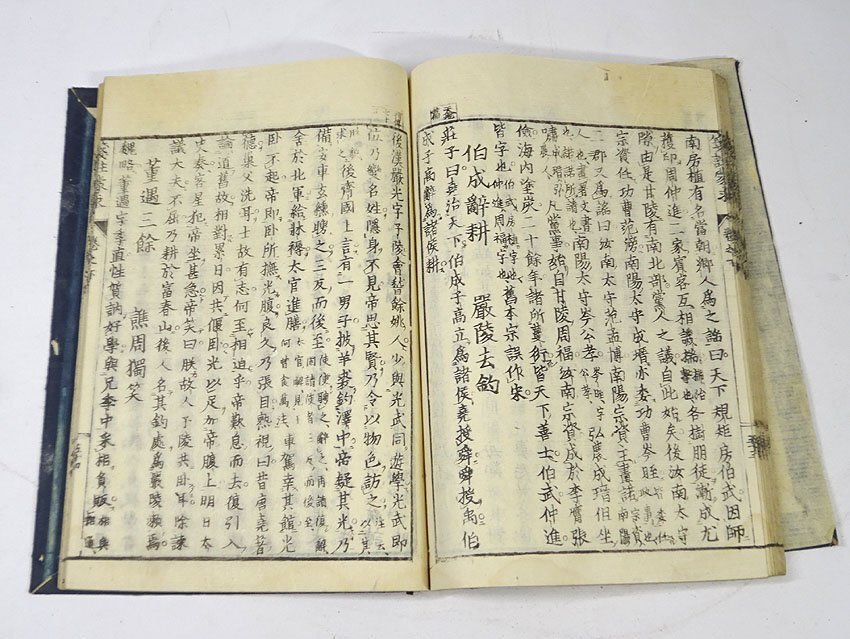 南房植有名當朝鄕人爲之謠曰天下規矩房伯武因師
獲印周仲進二家賓客互相譏揣各樹朋徒漸成尤
隙由是甘陵有南北部黨人之議自此始矣後汝南太守
宗資任功曹范滂南陽太守成瑨亦委功曹岑晊
二郡又爲謠曰汝南太守范孟博南陽宗資主畫諾南陽
南陽太守岑公孝岑晊字公孝弘農成瑨但坐
嘯凡黨事始自甘陵周福汝南宗資成於李膺張
儉海内塗炭二十餘年諸所蔓衍皆天下善士伯武仲進
皆字也伯武房植字也仲進周福字也舊本宗誤作朱
伯成辭耕 嚴陵去釣
莊子曰堯治天下伯成子高立爲諸侯堯授舜舜授禹伯
成子高辭爲諸侯耕
後漢嚴光字子陵會稽餘姚人少與光武同遊學光武即
位乃變名姓隱身不見帝思其賢乃令以物色訪之
後齊國上言有一男子披羊裘釣澤中帝疑其光乃
備安車玄纁聘之三反而後至
舍於北軍給牀褥太官進膳車駕幸其館光
臥不起帝即臥所撫光腹良久乃張目熟視曰昔唐堯著
德巢父洗耳士故有志何至相迫乎帝歎息而去復引入
論道舊故相對累日因共偃臥光以足加帝腹上明日太
史奏客星犯帝坐甚急帝笑曰朕故人子陵共臥耳除諫
議大夫不屈乃耕於富春山後人名其釣處爲嚴陵瀨焉
董遇三餘 譙周獨笑
魏略董遇字季直性質訥好學與兄季中采梠負販